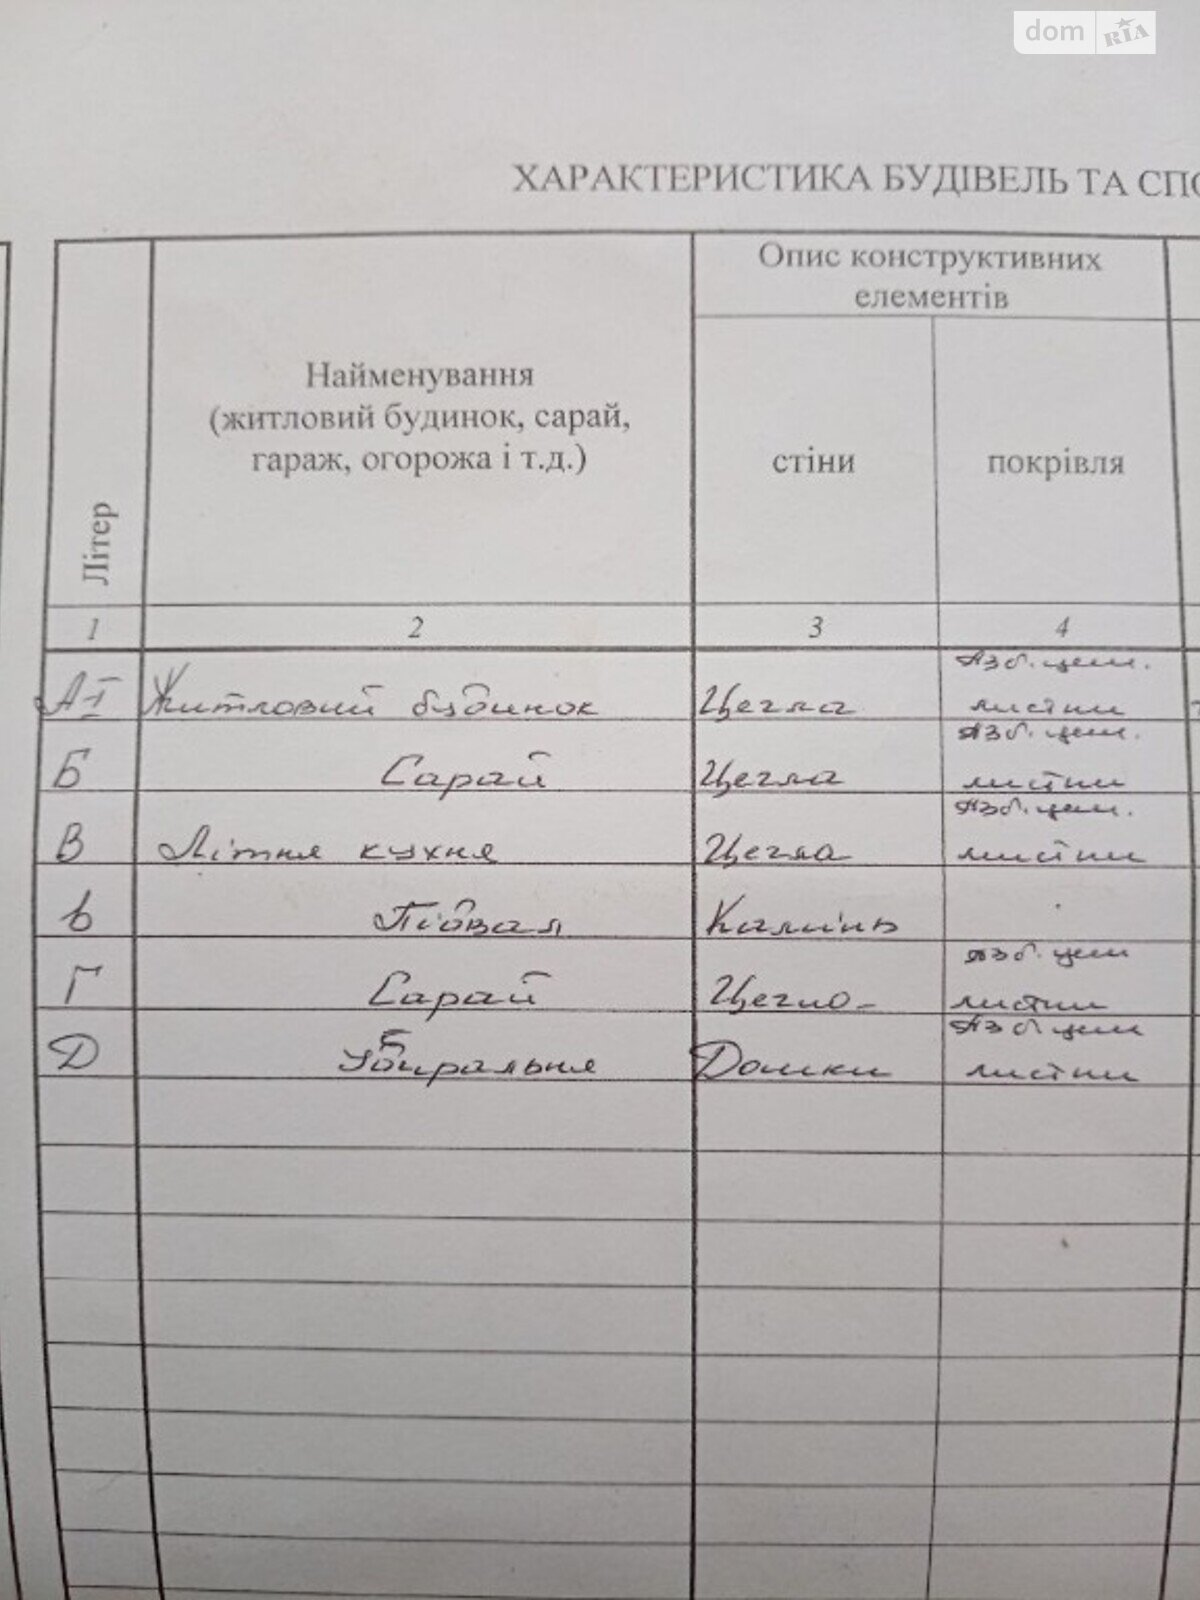 dom RIA
ХАРАКТЕРИСТИКА БУДІВЕЛЬ ТА СПО
Літер
Найменування
(житловий будинок, сарай,
гараж, огорожа і т.д.)
Опис конструктивних
елементів
стіни
покрівля
1 2 3 4
А-І Житловий будинок Цегла Азб. цем.
листи
Б Сарай Цегла Азб. цем.
листи
В Літня кухня Цегла Азб. цем.
листи
в Підвал Камінь
Г Сарай Цегла Азб. цем
листи
Д Убиральня Дошки Азб. цем
листи